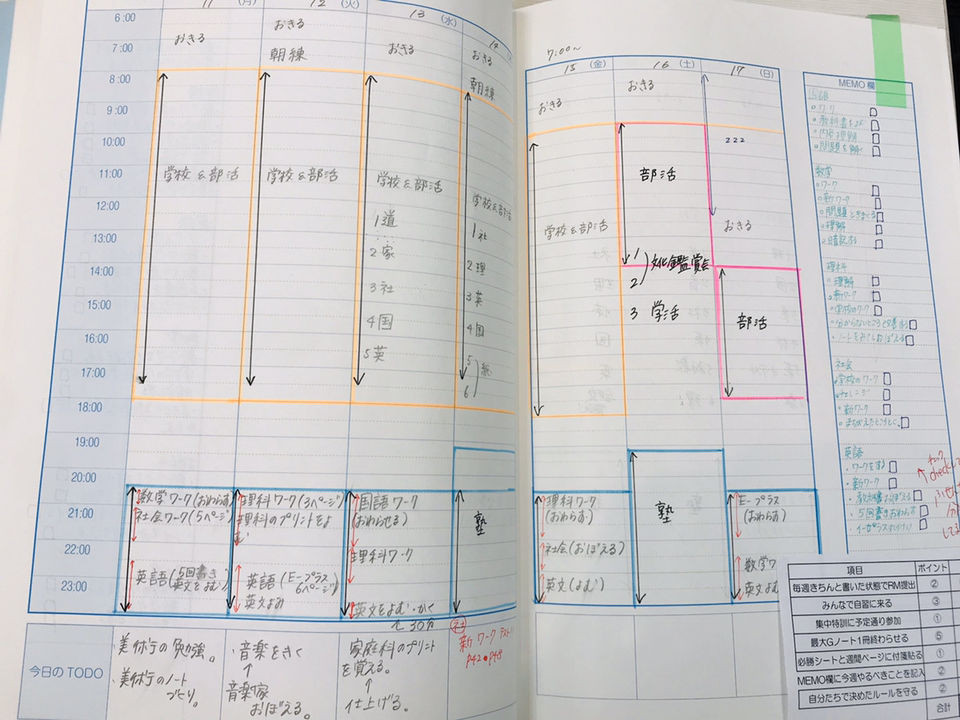 11 (月)
12 (火)
13 (水)
14
7:00~
15 (金)
16 (土)
17 (日)
6:00
7:00
8:00
9:00
10:00
11:00
12:00
13:00
14:00
15:00
16:00
17:00
18:00
19:00
20:00
21:00
22:00
23:00
おきる
学校&部活
数学ワーク(おわらす)
社会ワーク(5ページ)
英語(5回書き
英文をよむ)
おきる
朝練
学校&部活
理科ワーク(3ページ)
理科のプリントをよ
む
英語(E-プラス
6ページ)
英文よみ
おきる
学校&部活
1道
2家
3社
4国
5英
国語ワーク
(おわらせる)
理科ワーク
英文をよむ・かく
おきる
朝練
学校&部活
1社
2理
3英
4国
5
6
塾
おきる
学校&部活
理科ワーク
(おわらす)
社会(おぼえる)
英文(よむ)
おきる
部活
1
2
文化鑑賞会
3 学活
塾
zzz
おきる
部活
E-プラス
(おわらす)
数学ワ
英文よむ
今日のTODO
美術庁の勉強。
美術庁のノート
づくり。
・音楽をきく
↑
音楽家
おぼえる。
家庭科のプリント
を覚える。
↑
仕上げる。
新ワーク
P42•P48
MEMO欄
国語
ワーク
数学
ワーク
新ワーク
理解
暗記する
理科
理解
新ワーク
学校のワーク
社会
学校のワーク
新ワーク
英語
・ワークをする
・新ワーク
・5回書きおわらす
check
項目 ポイント
毎週きちんと書いた状態でRM提出 ②
みんなで自習に来る ③
集中特訓に予定通り参加 ①
最大Gノート1冊終わらせる ⑤
必勝シートと週間ページに付箋貼る ①
MEMO欄に今週やるべきことを記入 ②
自分たちで決めたルールを守る ②
合計